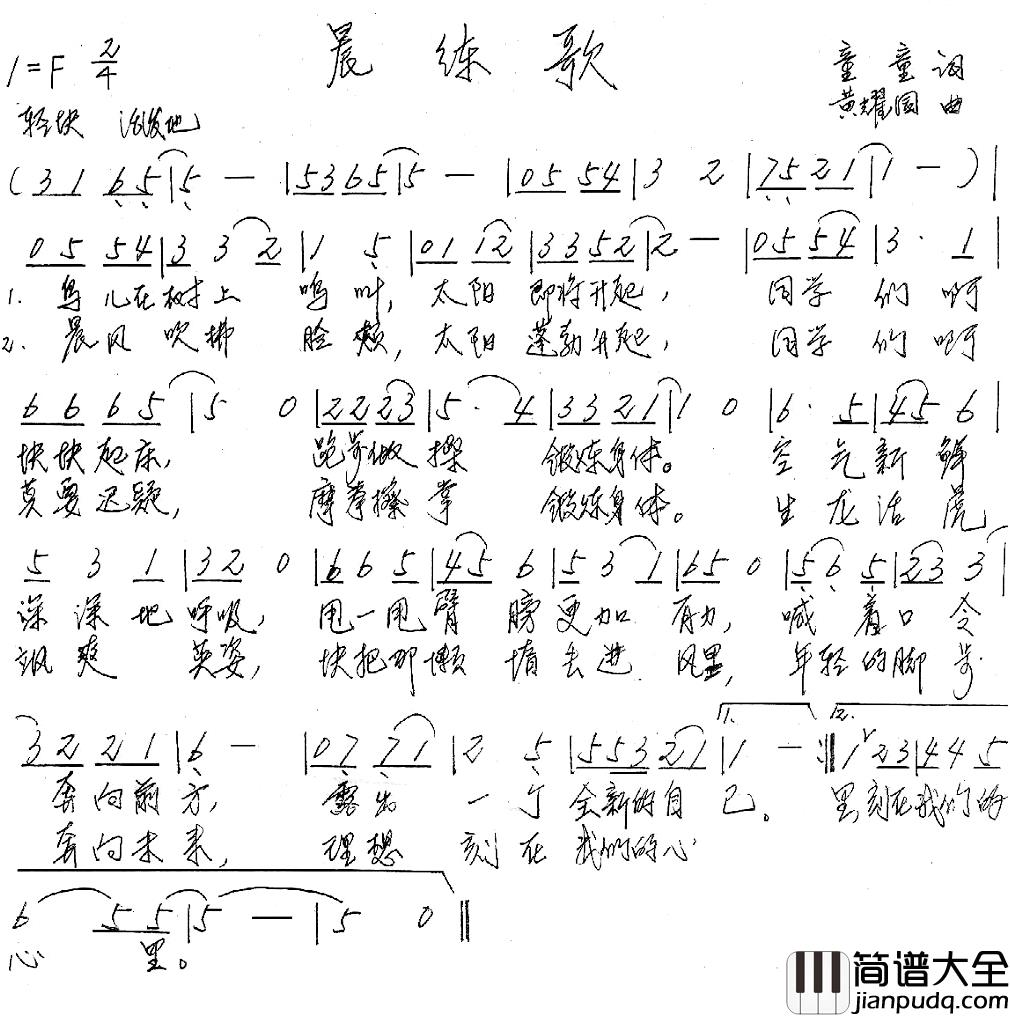 晨练歌
1=F 2/4
童童词
黄耀国曲
轻快 活泼地
(3 1 6 5|5 — |5 3 6 5|5 — |0 5 5 4|3 2 |7 5 2 1|1 — )|
0 5 5 4|3 3 2|1 5|0 1 1 2|3 3 5 2|2 — |0 5 5 4|3· 1|
1. 鸟儿在树上 鸣叫, 太阳 即将升起, 同学们啊
2. 晨风吹拂 脸颊, 太阳 蓬勃升起, 同学们啊
6 6 6 5|5 0|2 2 2 3|5· 4|3 3 2 1|1 0|6· 5|4 5 6|
快快起床, 跑步做操 锻炼身体。 空气新鲜
莫要迟疑, 摩拳擦掌 锻炼身体。 生龙活虎
5 3 1|3 2 0|6 6 5|4 5 6|5 3 1|6 5 0|5 6 5|2 3 3|
深深地呼吸, 甩一甩臂膀更加有力, 喊着口令
飒爽英姿, 快把那懒惰丢进风里, 年轻的脚步
1. 2.
3 2 2 1|6 — |0 7 7 1|2 5|5 5 3 2 1|1 — :‖1 2 3|4 4 5
奔向前方, 露出一个全新的自己。 里刻在我们的
奔向未来, 理想刻在我们的心
6 5 5|5 — |5 0‖
心里。
简谱大全
jianpudq.com